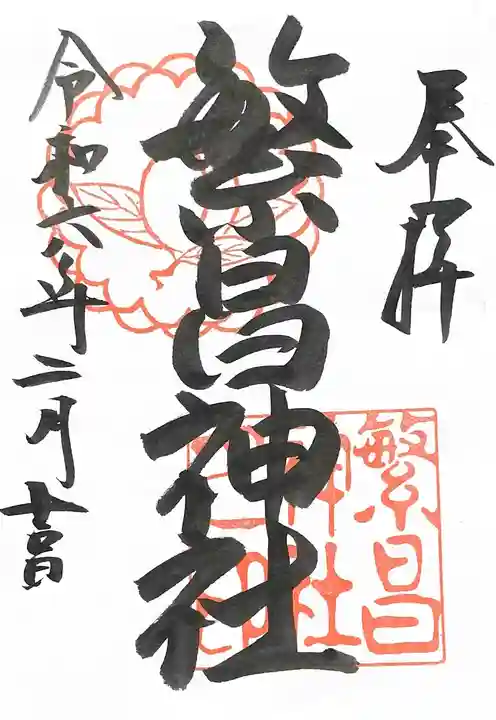 奉拝
繁昌神社
繁昌
神社
之印
令和六年二月十四日